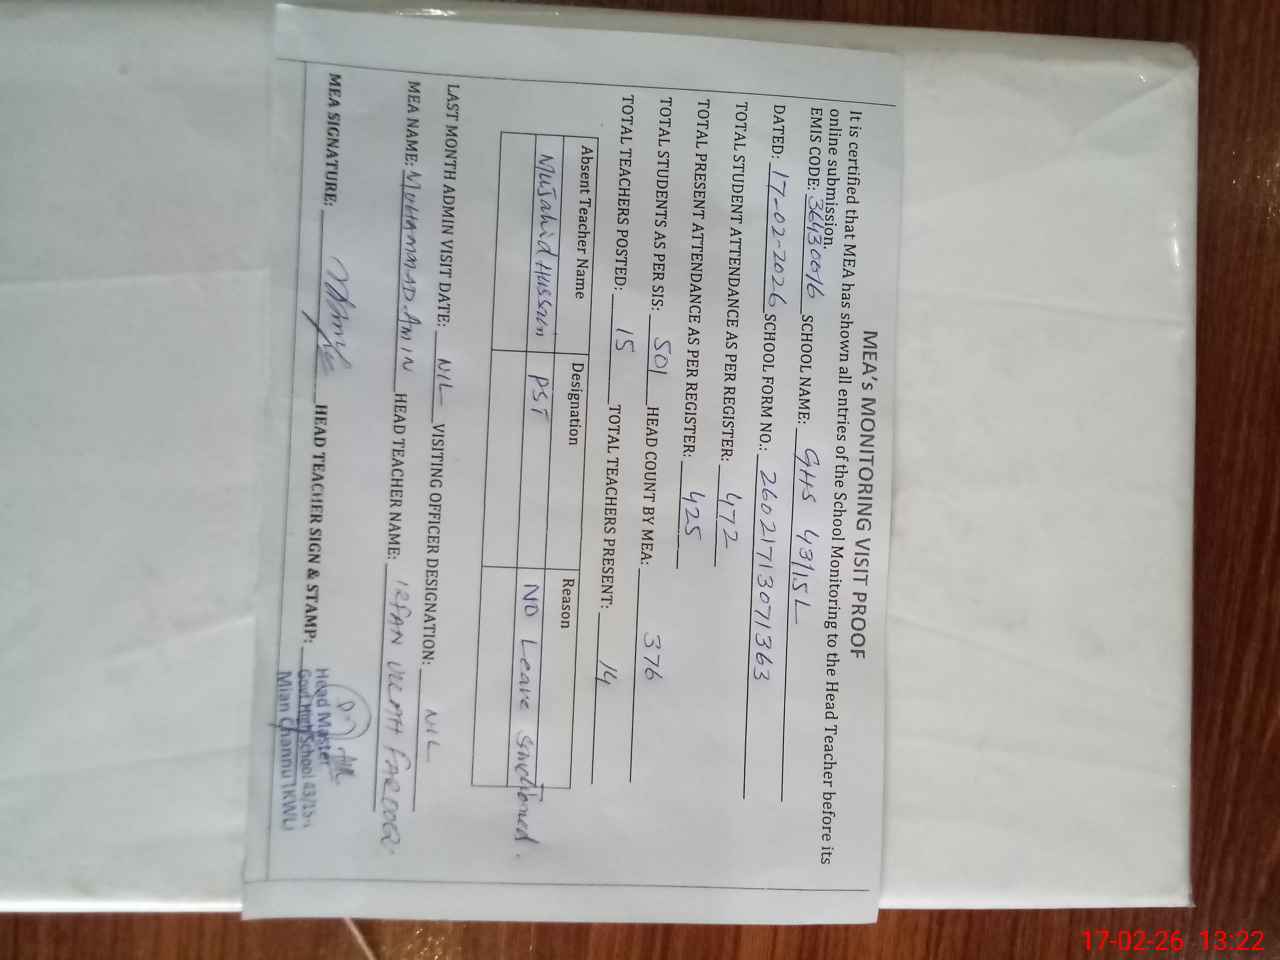 MEA's MONITORING VISIT PROOF
It is certified that MEA has shown all entries of the School Monitoring to the Head Teacher before its
online submission.
EMIS CODE: 36430016 SCHOOL NAME: GHS 43/15L
DATED: 17-02-2026 SCHOOL FORM NO.: 26021713071363
TOTAL STUDENT ATTENDANCE AS PER REGISTER: 472
TOTAL PRESENT ATTENDANCE AS PER REGISTER: 425
TOTAL STUDENTS AS PER SIS: 501 HEAD COUNT BY MEA: 376
TOTAL TEACHERS POSTED: 15 TOTAL TEACHERS PRESENT: 14
Absent Teacher Name Designation Reason
Mujahid Hussain PST NO Leave Sanctioned.
LAST MONTH ADMIN VISIT DATE: NIL VISITING OFFICER DESIGNATION: NIL
MEA NAME: MUHAMMAD AMIN HEAD TEACHER NAME: IRFAN ULLAH FAROOQ
MEA SIGNATURE: HEAD TEACHER SIGN & STAMP:
Head Master
Govt. High School 43/15L
Mian Channu (KWL)
17-02-26 13:22